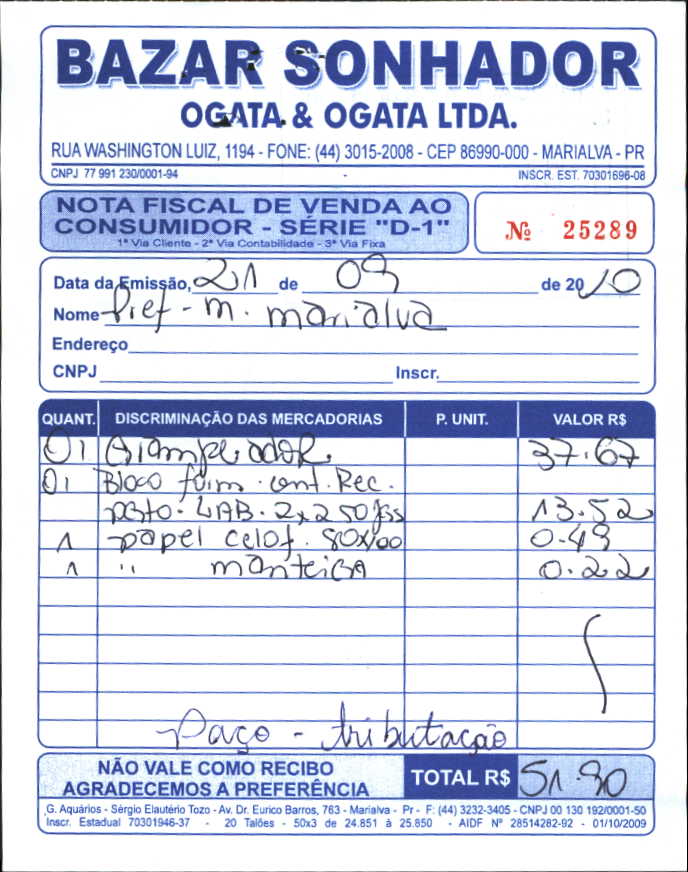 BAZAR SONHADOR
OGATA & OGATA LTDA.
RUA WASHINGTON LUIZ, 1194 - FONE: (44) 3015-2008 - CEP 86990-000 - MARIALVA - PR
CNPJ 77 991 230/0001-94 - INSCR. EST. 70301696-08
NOTA FISCAL DE VENDA AO
CONSUMIDOR - SÉRIE "D-1"
1ª Via Cliente - 2ª Via Contabilidade - 3ª Via Fixa
Nº 25289
Data da Emissão, 21 de 09 de 2010
Nome Pref - M. Marialva
Endereço
CNPJ Inscr.
QUANT. DISCRIMINAÇÃO DAS MERCADORIAS P. UNIT. VALOR R$
01 Grampeador 37.67
01 Bloco form. cont. Rec.
pgto. LAB. 2x250 13.52
1 papel celof. 80x100 0.49
1 " manteiga 0.22
Paço - tributação
NÃO VALE COMO RECIBO
AGRADECEMOS A PREFERÊNCIA
TOTAL R$ 51.90
G. Aquários - Sérgio Elautério Tozo - Av. Dr. Eurico Barros, 763 - Marialva - Pr - F: (44) 3232-3405 - CNPJ 00 130 192/0001-50
Inscr. Estadual 70301946-37 - 20 Talões - 50x3 de 24.851 à 25.850 - AIDF Nº 28514282-92 - 01/10/2009